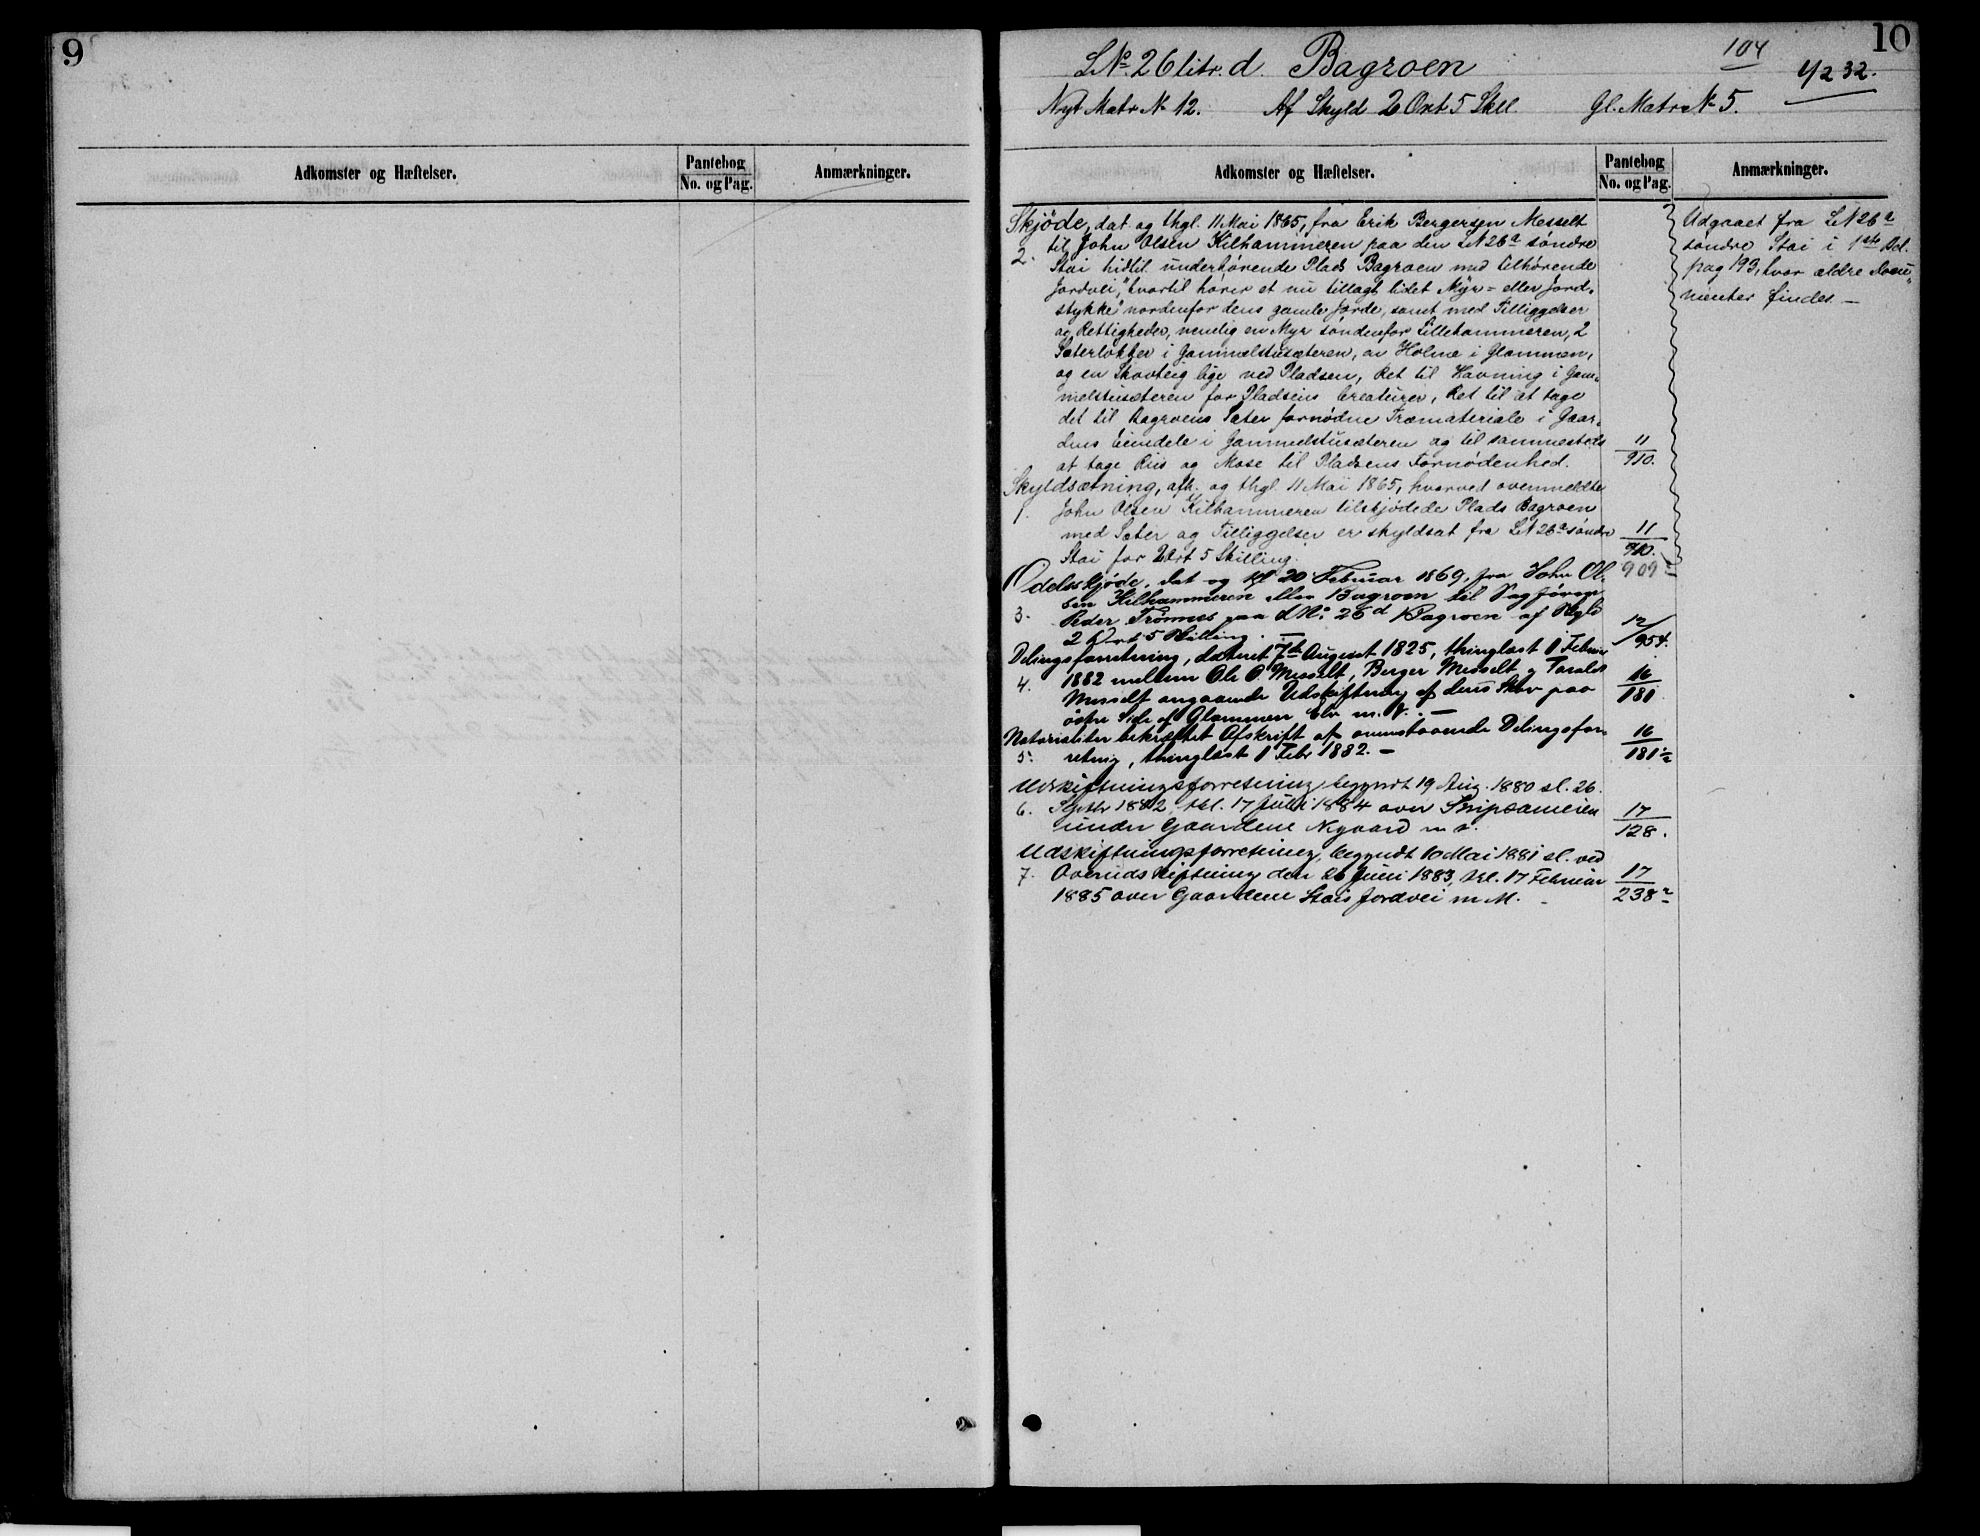 9
Adkomster og Hæftelser.
Pantebog
No. og Pag.
Anmærkninger.
10
104
L№. 26 litr. d. Bagroen
4/2 32.
Nyt Matr № 12. Af Skyld 2 Ort 5 Skll. Gl. Matr № 5.
Adkomster og Hæftelser.
Pantebog
No. og Pag.
Anmærkninger.
Skjøde, dat. og thgl. 11 Mai 1865, fra Erik Bergersen Messelt
2. til John Olsen Kilhammeren paa den LN 26a søndre
Stai hidtil underhørende Plads Bagroen med tilhørende
Jordvei, hvortil hører et nu tillagt lidet Myr- eller Jord-
stykke nordenfor dens gamle Jorde, samt med Tilliggelser
og Rettigheder, nemlig en Myr søndenfor Lillehammeren, 2
Sæterløkker i Gammelstusæteren, en Holme i Glommen,
og en Skovteig lige ved Pladsen, Ret til Havning i Gam-
melstusæteren for Pladsens Creaturer, Ret til at tage
det til Bagroens Sæter fornødne Træmateriale i Gaar-
dens Eiendele i Gammelstusæteren og til sammesteds
at tage Riis og Mose til Pladsens Fornødenhed.
11
910.
Skyldsætning, afh. og thgl. 11 Mai 1865, hvorved ovenmeldte
1. John Olsen Kilhammeren tilskjødede Plads Bagroen
med Sæter og Tilliggelser er skyldsat fra LN 26a søndre
Stai for 2 Ort 5 Skilling.
11
910.
909
Odelsskjøde, dat og tgl 20 Februar 1869, fra John Ol-
sen Kilhammeren eller Bagroen til Sagfører
3. Peder Trønnes paa LN: 26d Bagroen af Skyld
2 Ort 5 Skilling. —
12/954.
Delingsforretning, dateret 7de August 1825, thinglæst 1 Februar
4. 1882 mellem Ole O. Messelt, Berger Messelt og Tarald
Messelt angaaende Udskiftning af deres Skov paa
østre Side af Glommen Elv m. V. —
16
181
Notarialiter bekræftet Afskrift af ovenstaaende Delingsfor-
5. retnig, thinglæst 1 Febr 1882. —
16
181
Udskiftningsforretning begyndt 19 Aug. 1880 sl. 26.
6. Septbr 1882, tgl. 17 Juli 1884 over Snipsameien
under Gaardene Nygaard m. v.
17
128.
Udskiftningsforretning, begyndt 10 Mai 1881 sl. ved
7. Overudskiftning den 26 Juni 1883, tgl. 17 Februar
1885 over Gaardene Stais Jordvei m. M.
17
238
Udgaaet fra LN 26a
søndre Stai i 1ste Del.
pag 193, hvor ældre Docu-
menter findes. —